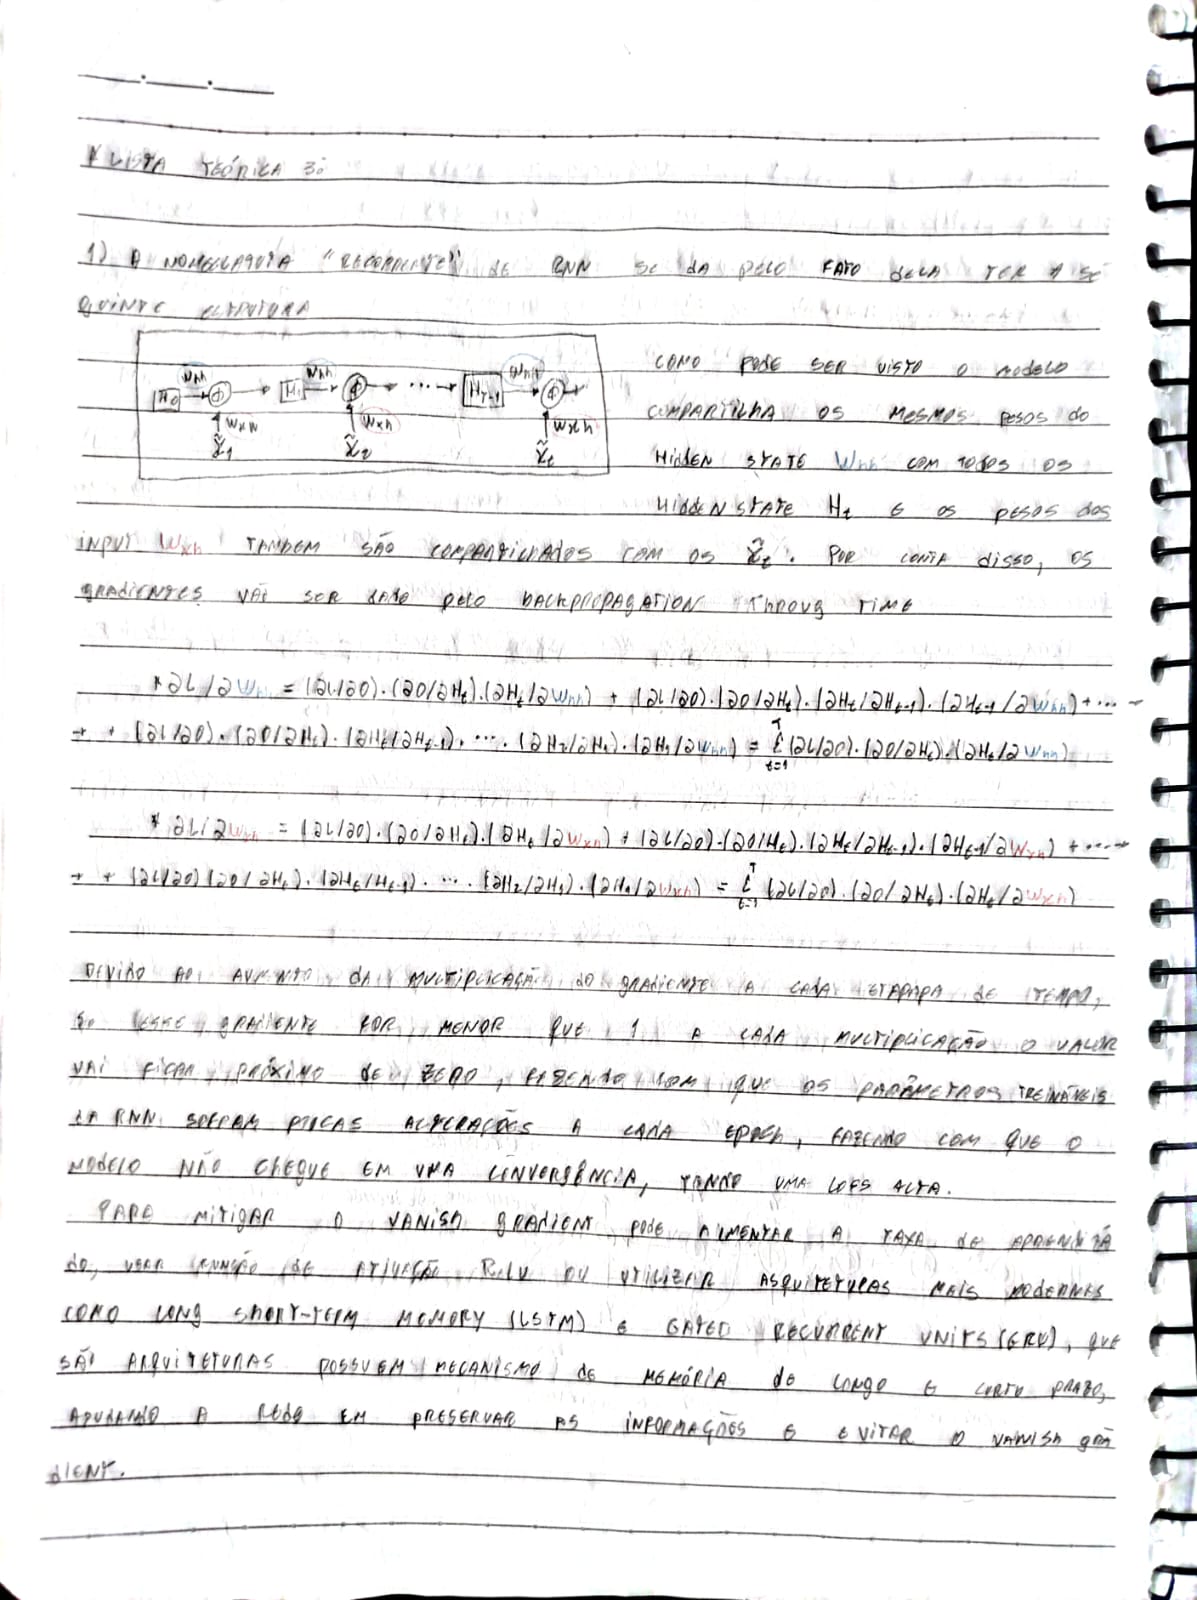 * LISTA TEÓRICA 3:
1) A NOMECLATUTA "RECORRENTE" de RNN SE dA PELO FATO dELA TER A SE
QUINTE ESTRUTURA
H0 Whh H1 Whh ... HT-1 Whh
Wxh Wxh Wxh
X̃1 X̃2 X̃t
COMO PODE SER VISTO O MODELO
COMPARTILHA OS MESMOS PESOS dO
HIddEN STATE Whh COM TODOS OS
HIddEN STATE Ht E OS PESOS dOS
INPUT Wxh TAMBEM SÃO COMPARTILHADOS COM OS X̃t. POR CONTA dISSO, OS
gRAdIENTES VAI SER dAdO PELO BACKPROPAGATION THROUG TIME
* ∂L/∂Whh = (∂L/∂O).(∂O/∂Ht).(∂Ht/∂Whh) + (∂L/∂O).(∂O/∂Ht).(∂Ht/∂Ht-1).(∂Ht-1/∂Whh) + ... →
→ + (∂L/∂O).(∂O/∂Ht).(∂Ht/∂Ht-1). ... .(∂H2/∂H1).(∂H1/∂Whh) = Σ t=1 T (∂L/∂O).(∂O/∂Ht).(∂Ht/∂Whh)
* ∂L/∂Wxh = (∂L/∂O).(∂O/∂Ht).(∂Ht/∂Wxh) + (∂L/∂O).(∂O/Ht).(∂Ht/∂Ht-1).(∂Ht-1/∂Wxh) + ... →
→ + (∂L/∂O)(∂O/∂Ht).(∂Ht/Ht-1). ... .(∂H2/∂H1).(∂H1/∂Wxh) = Σ t=1 T (∂L/∂O).(∂O/∂Ht).(∂Ht/∂Wxh)
DEVIDO AO AUMENTO dA MULTIPLICAÇÃO dO gRAdIENTE A CADA ETAPAPA dE TEMPO,
SE ESSE gRADIENTE FOR MENOR QUE 1 A CADA MULTIPLICAÇÃO O VALOR
VAI FICAR PRÓXIMO dE ZERO, FAZENDO COM QUE OS PARÂMETROS TREINÁVEIS
dA RNN SOFRAM POUCAS ALTERAÇÕES A CADA EPOCH, FAZENDO COM QUE O
MODELO NÃO CHEGUE EM UMA CONVERGÊNCIA, TENDO UMA LOSS ALTA.
PARA MITIGAR O VANISH gRADIENT PODE AUMENTAR A TAXA dE APRENDIZA
dO, USAR FUNÇÃO dE ATIVAÇÃO RELU OU UTILIZAR ASQUITETURAS MAIS MODERNAS
COMO LONG SHORT-TERM MEMORY (LSTM) E GATED RECURRENT UNITS (GRU), QUE
SÃO ARQUITETURAS POSSUEM MECANISMO dE MEMÓRIA dE LONGO E CURTO PRAZO,
AJUDANDO A REDE EM PRESERVAR AS INFORMAÇÕES E EVITAR O VANISH gRA
dIENT.